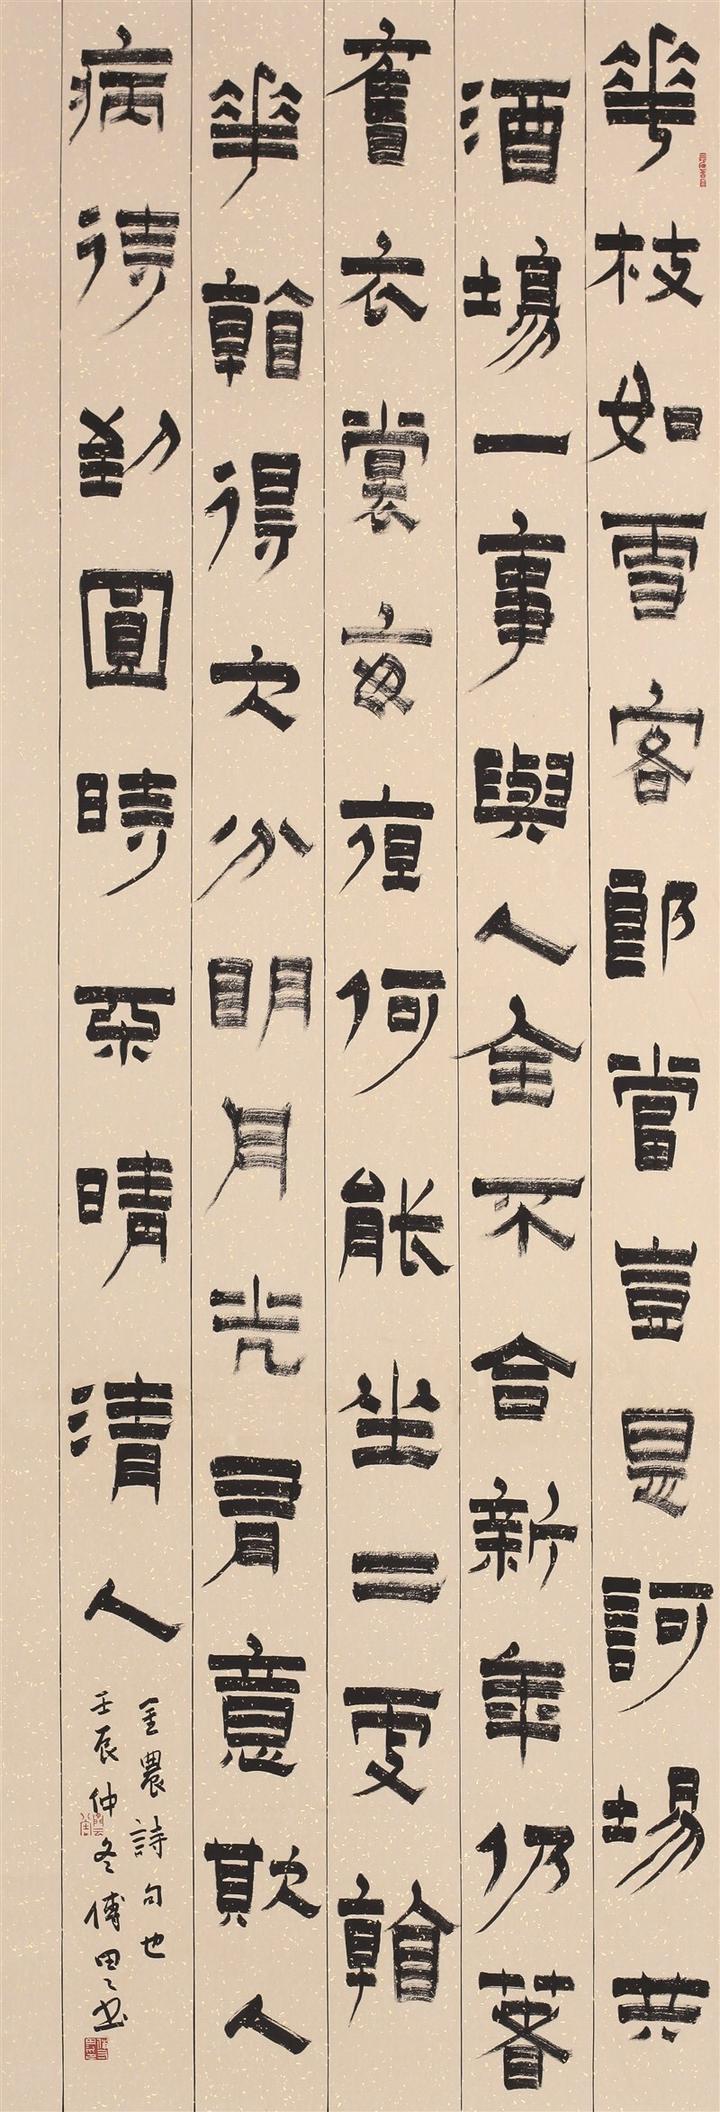 華枝如雪客郎當豈是訶場共
酒場一事與人全不合新年仍著
舊衣裳夜短何能坐二更看
華看得欠分明月光有意欺人
病待到圓時晴清人
金農詩句也
壬辰仲冬傅書